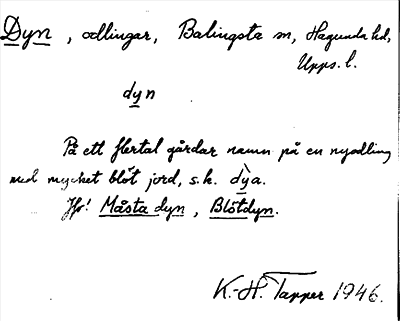 Dyn, odlingar, Balingsta sn, Hagunda hd,
Upps. l.
dyn
På ett flertal gårdar namn på en nyodling
med mycket blöt jord, s.k. dỳa.
Jfr! Måsta dyn, Blötdyn.
K.-H. Tapper 1946.